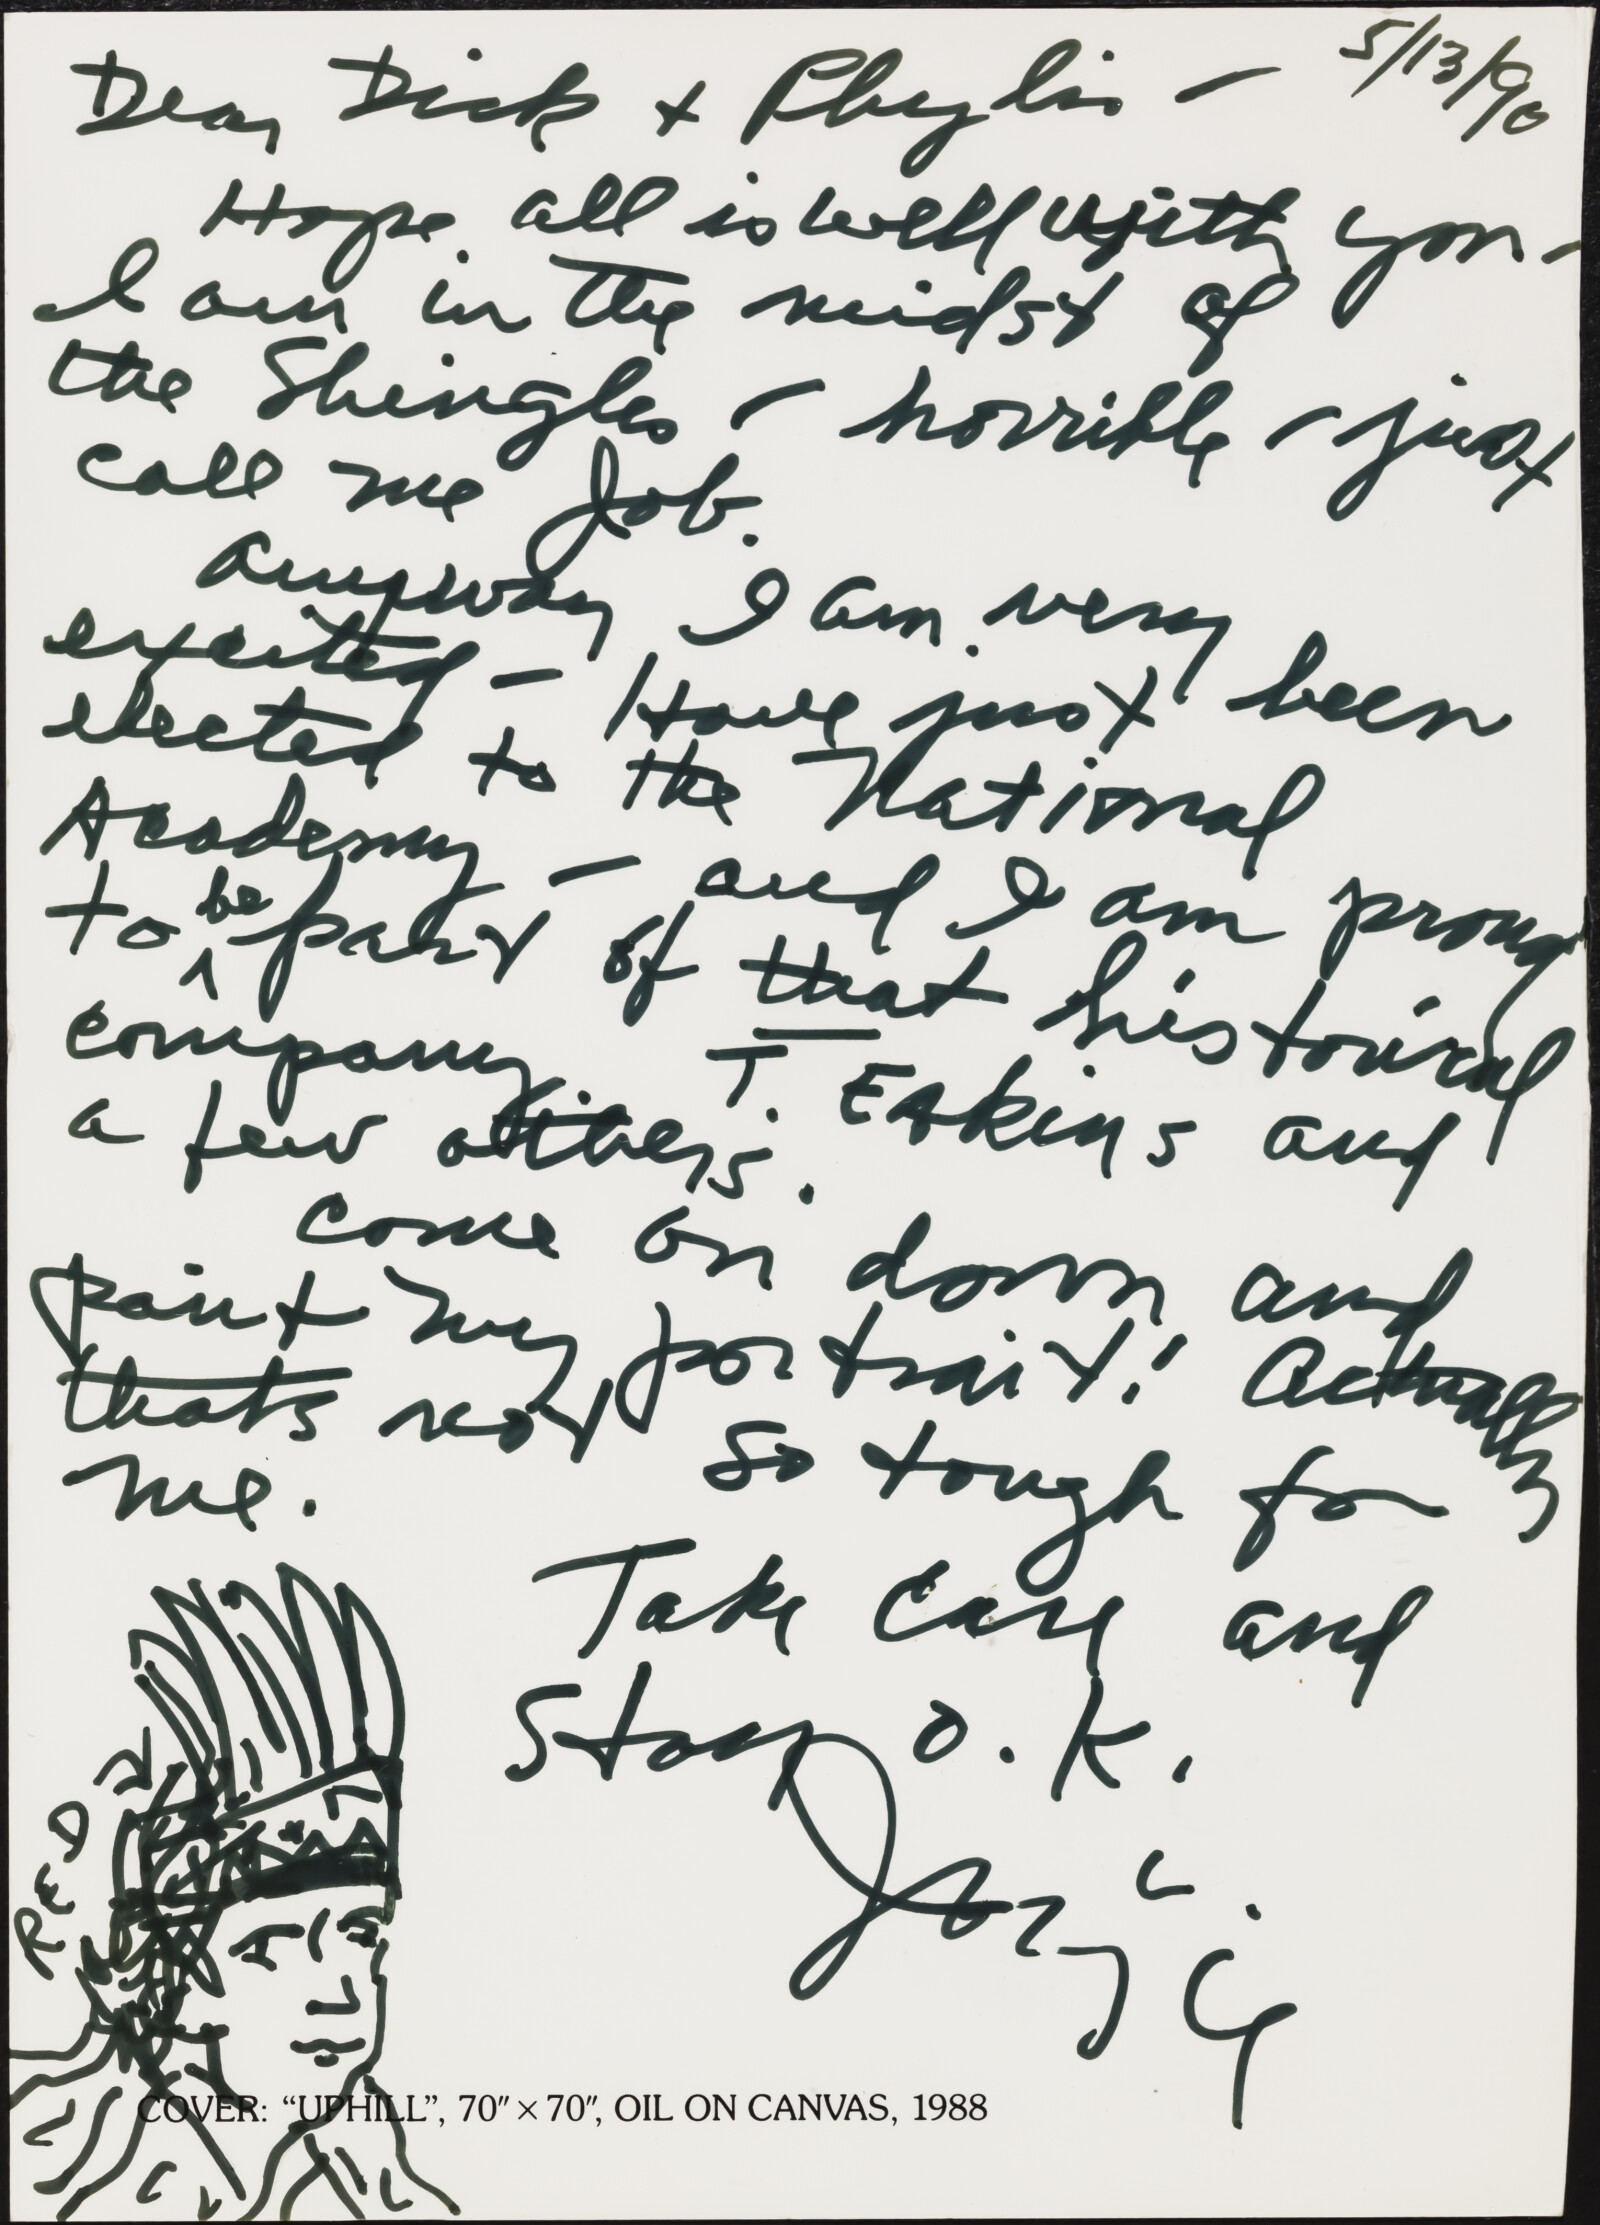 5/13/90
Dear Dick + Phylis –
Hope all is well with you –
I am in the midst of
the Shingles – horrible – just
call me Job.
Anyway I am very
excited – Have just been
elected to the National
Academy – and I am proud
to be part of that historical
company. T. Eakins and
a few others.
Come on down and
paint my portrait! Actually
thats not so tough for
me.
Take care and
Stay O.K.
RED
COVER: “UPHILL”, 70″ × 70″, OIL ON CANVAS, 1988